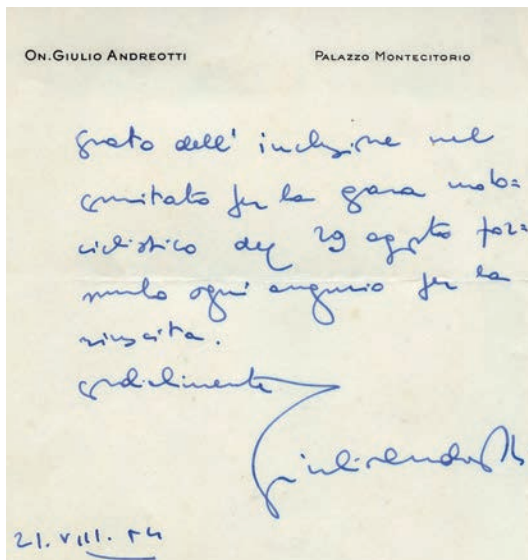 ON. GIULIO ANDREOTTI PALAZZO MONTECITORIO
grato dell' inclusione nel
comitato per la gara moto=
ciclistica del 29 agosto for=
mulo ogni augurio per la
riuscita.
cordialmente
Giulio Andreotti
21. VIII. 54